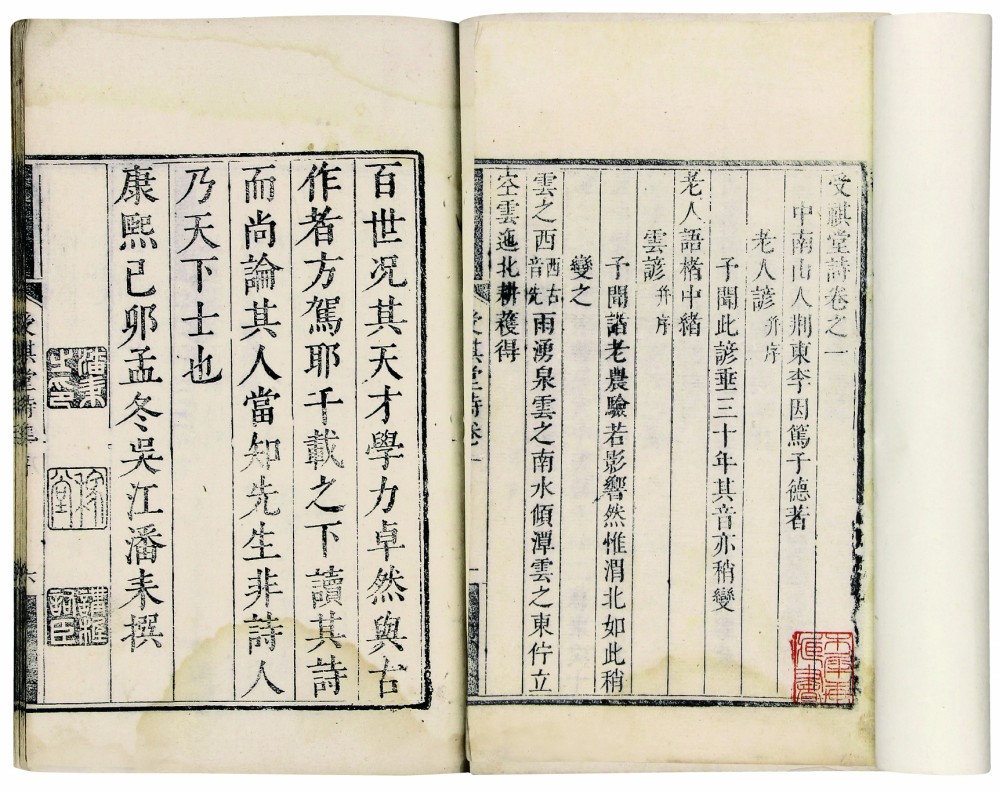 受祺堂詩卷之一
中南山人荆東李因篤子德著
老人諺并序
予聞此諺垂三十年其音亦稍變
老人語楮中緒
雲諺并序
予聞諸老農驗若影響然惟渭北如此稍
變之
雲之西西古音先雨湧泉雲之南水傾潭雲之東佇立
空雲迤北耕穫得
百世况其天才學力卓然與古
作者方駕耶千載之下讀其詩
而尚論其人當知先生非詩人
乃天下士也
康熙己卯孟冬吳江潘耒撰
受祺堂詩
六